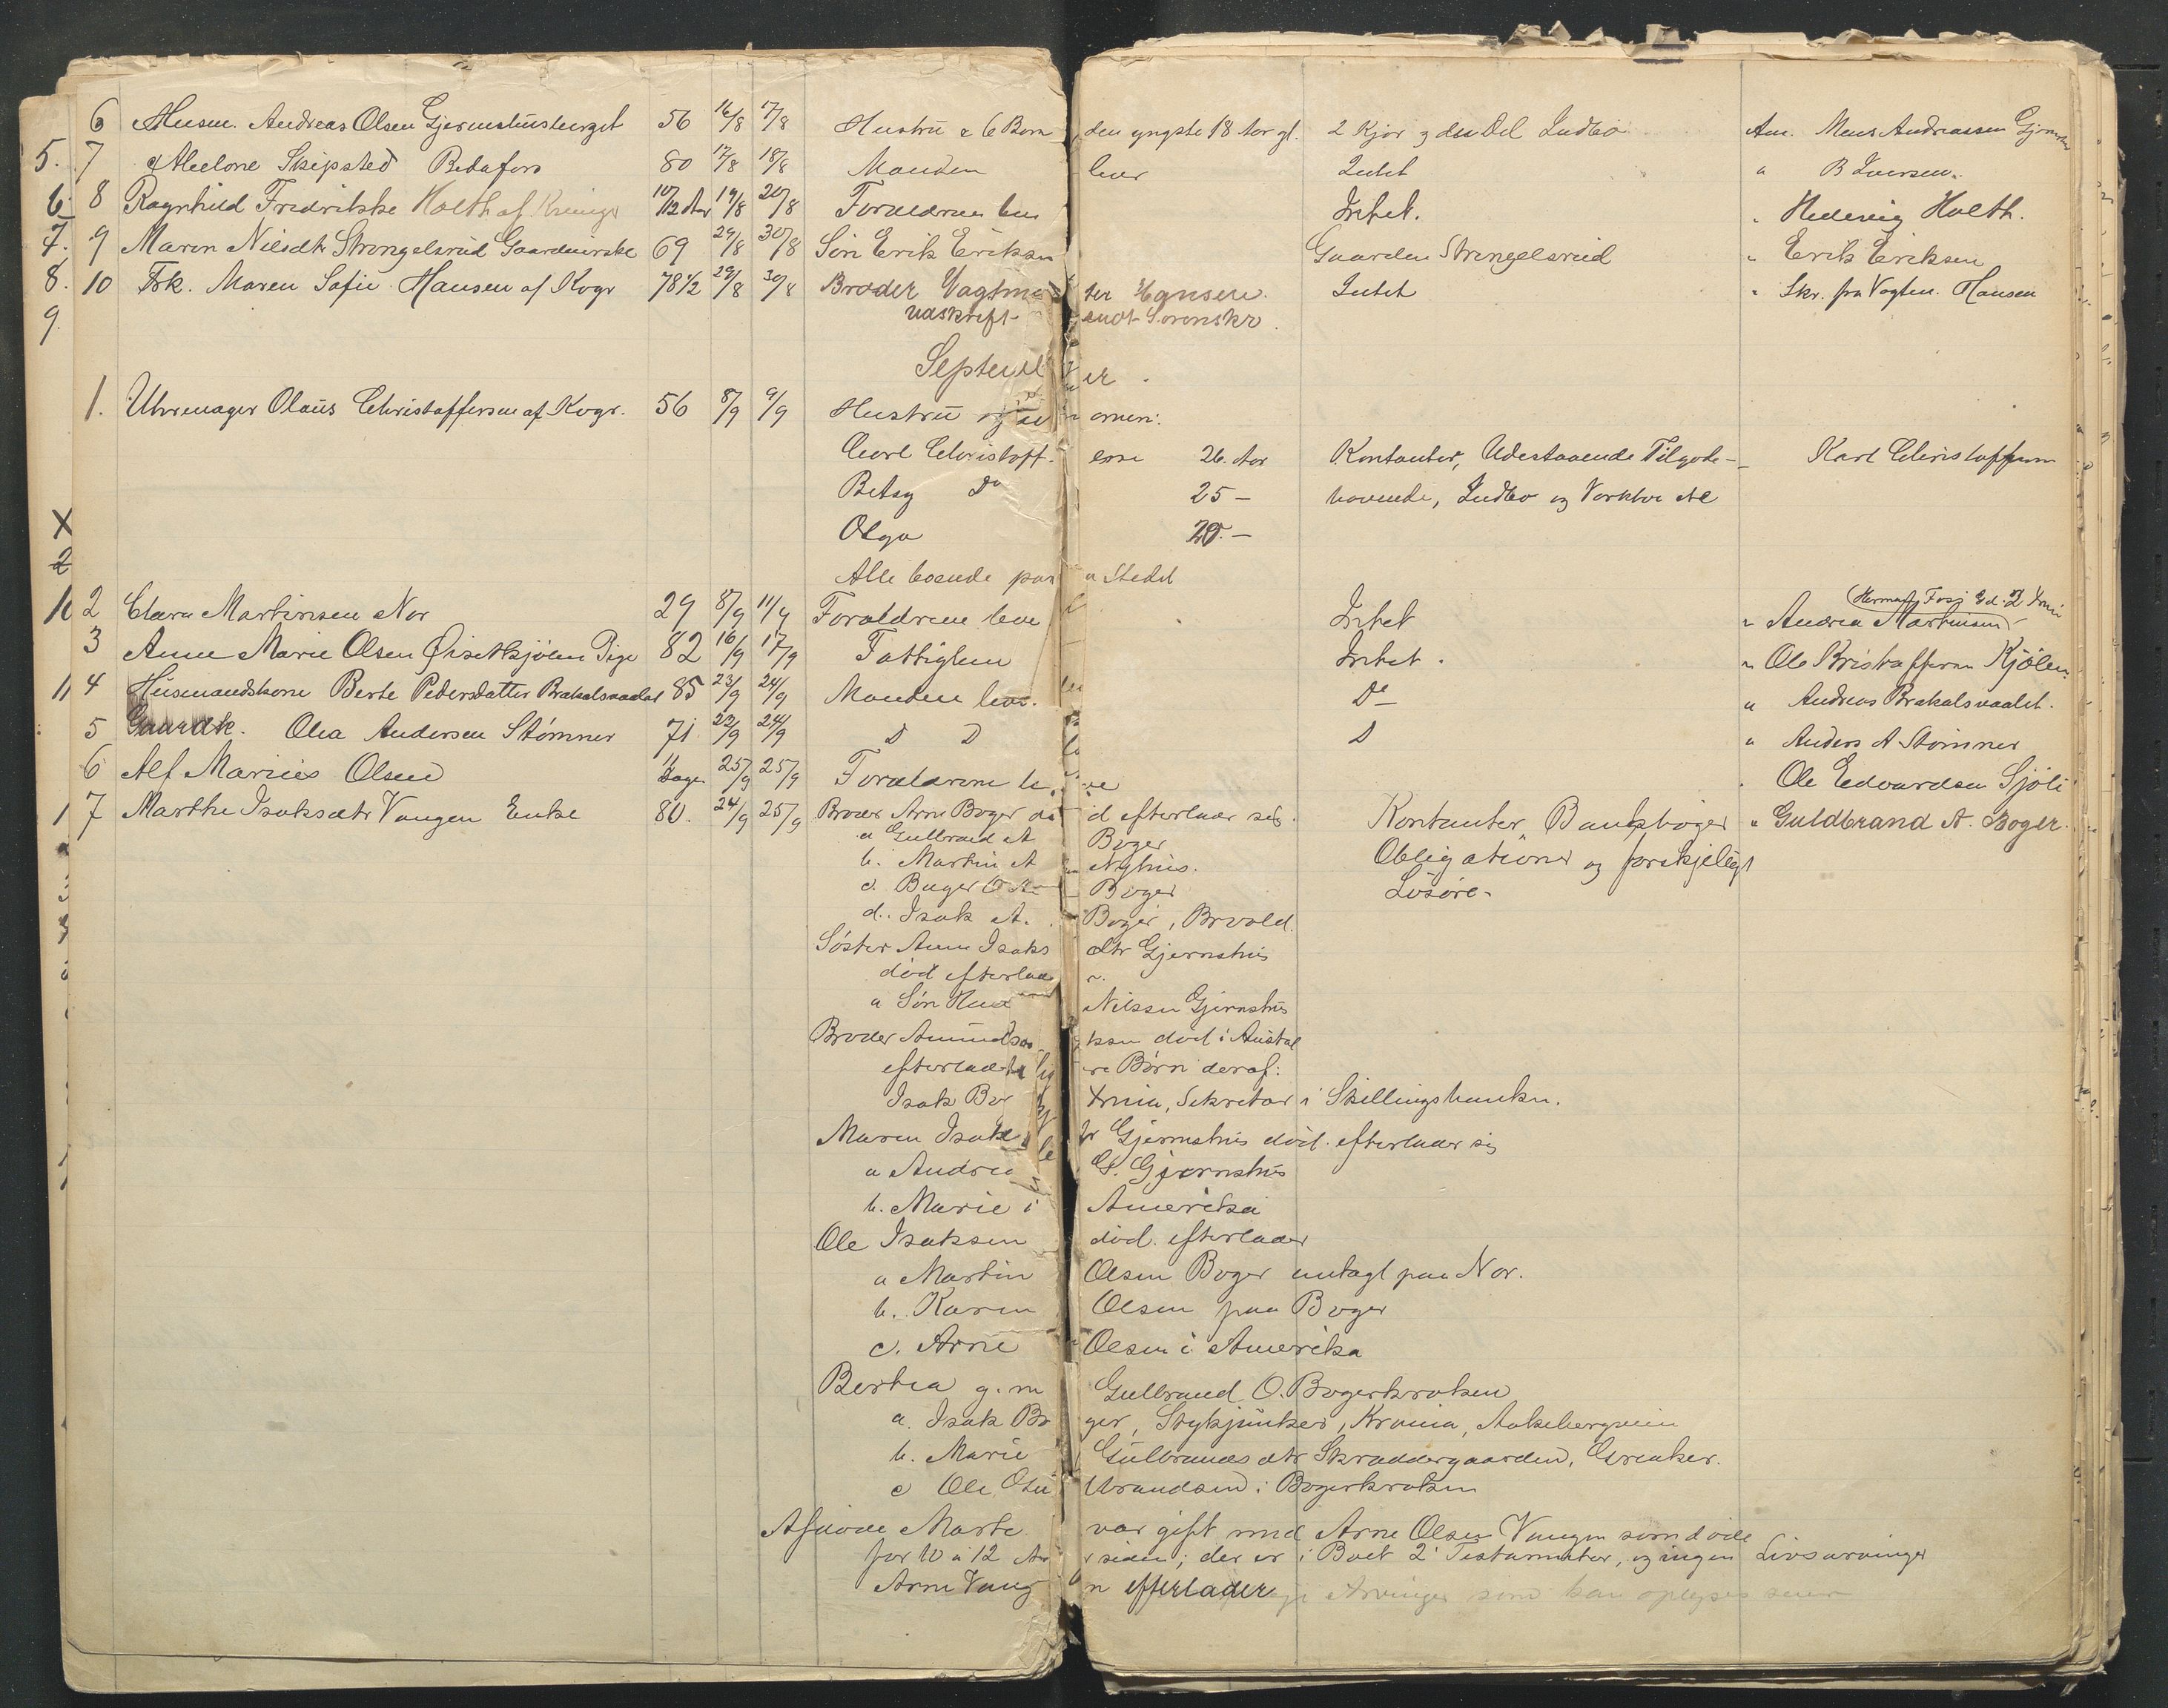 6 Husm. Andreas Olsen Gjermshusberget 56 16/8 17/8 Hustru & 6 Børn den yngste 18 Aar gl. 2 Kjør og den Del Indbo Anm. Andreassen
5. 7 Skipsted 80 17/8 18/8 Manden lever Intet " B Iversen
6. 8 Ragnhild Fredrikke Holth af 10/12 Aar 19/8 20/8 Forældrene Intet. " Hedevig Holth.
7. 9 Maren Nilsdtr Strengelsrud 69 29/8 30/8 Søn Erik Eriksen Gaarden Strengelsrud " Erik Eriksen
8. 10 Frk. Maren Sofie Hansen af Kvgr 78 1/2 29/8 30/8 Broder Vagtmester Hansen. Intet " Skr. fra Vagtm. Hansen
9. udskrift sendt Sorenskr.
September.
1. Uhrmager Olaus Christoffersen af Kvgr. 56 8/9 9/9 Hustru og
Carl Christoffersen 26. Aar Kontanter, Udestaaende Tilgode- Karl Christoffersen
Betsy Do 25 — havende, Indbo og
X Olga 20. —
2 Alle boende paa Stedet
10 2 Clara Martinsen Nor 29 8/9 11/9 Forældrene leve Intet " Andrea Martinsen
3 Anne Marie Olsen Pige 82 16/9 17/9 Fattiglem Intet. " Ole Kristoffersen Kjölen
11 4 Husmandskone Berte Pedersdatter Brakalsvaalet 85 23/9 24/9 Manden lever. Do — " Andreas Brakalsvaalet.
5 Gaardk. Olea Andersen Stømner 71 22/9 24/9 D D D " Anders A Stømner
6 Alf Marius Olsen 11 Dage 25/9 25/9 Forældrene leve Ole Edvardsen Sjöli
1 7 Marthe Isaksdtr Vangen Enke 80. 24/9 25/9 Broder Arne Boger død efterlader sig. Kontanter, Bankbøger " Guldbrand A. Boger.
a Gulbrand A Boger Obligationer og forskjelligt
b. Martin A Nyhus. Løsøre.
c. Boger
d. Isak A. Boger, Brvold.
Søster Anne Isaksdtr Gjernshus
død efterlader.
a Søn Nilssen Gjernshus
Broder død i
efterlader Børn deraf:
Isak Xrnia, Sekretær i Skillingsbanken.
Maren Gjermshus død. efterlader sig
a Andrea G. Gjernshus
b. Marie i Amerika
Ole Isaksen død. efterlader
a Martin Olsen Boger antagl paa Nor.
b. Karen Olsen paa Boger
c. Arne Olsen i Amerika
Berthea g. m Gulbrand O. Bogerkroken
a. Isak Boger, Stykjunker, Krania,
b. Marie Gulbrandsdtr Skræddergaarden, Grinker.
c Ole Gulbrandsen i Bogerkroken
Afdøde Marte var gift med Arne Olsen Vangen som døde
for 10 a 12 Aar siden; der er i Boet 2 Testamenter, og ingen Livsarvinger
Arne Vangen efterlader Arvinger som kan oplyses